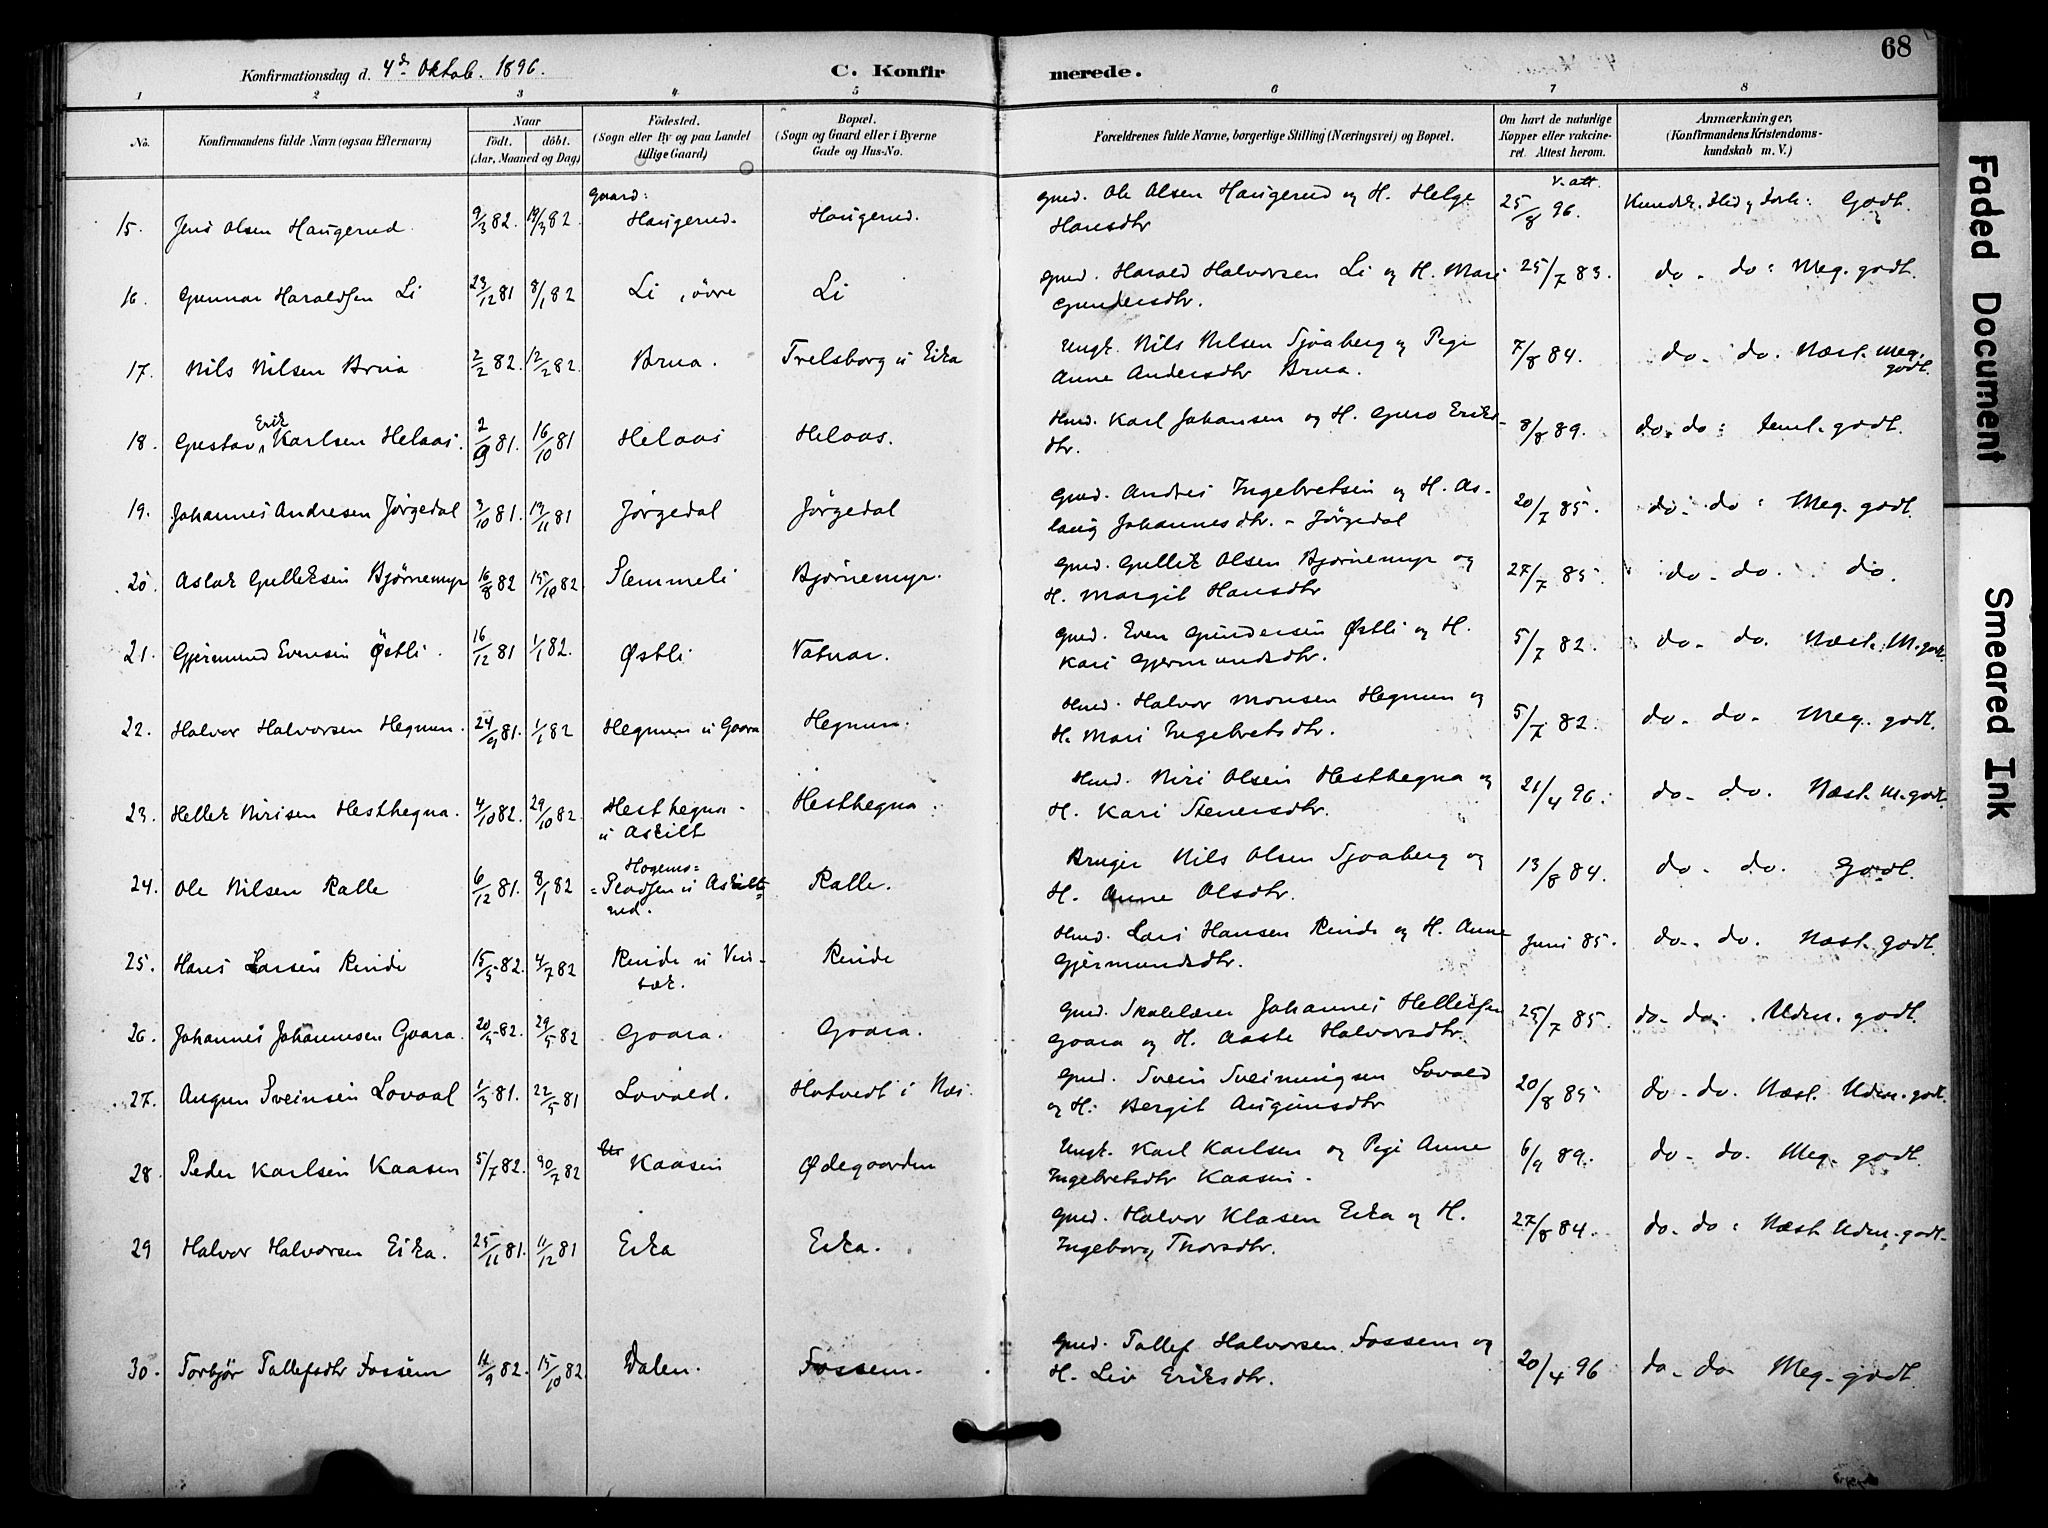 68
Konfirmationsdag d. 4de Oktob. 1896. C. Konfirmerede.
1 2 3 4 5 6 7 8
No. Konfirmandens fulde Navn (ogsaa Efternavn) Naar Födt. döbt. (Aar, Maaned og Dag) Födested. (Sogn eller By og paa Landet tillige Gaard) Bopæl. (Sogn og Gaard eller i Byerne Gade og Hus-No. Forældrenes fulde Navne, borgerlige Stilling (Næringsvei) og Bopæl. Om havt de naturlige Kopper eller vakcineret. Attest herom. Anmærkninger, (Konfirmandens Kristendomskundskab m. V.)
15. Jens Olsen Haugerud. 9/3 82. 19/3 82. Gaard: Haugerud. Haugerud. Gmd. Ole Olsen Haugerud og H. Helge Hansdtr v. att. 25/8 96. Kundsk. Flid og Forh: Godt.
16. Gunnar Haraldsen Li 23/12 81 8/1 82 Li, övre Li Gmd. Harald Halvorsen Li og H. Mari Gundersdtr. 25/7 83. do. do: Meg. godt.
17. Nils Nilsen Brua 2/2 82. 12/2 82. Brua. Trelsborg u Eika Ungk. Nils Nilsen Sjoaberg og Pige Anne Andersdtr Brua. 7/8 84. do. do. Næst. meg. godt.
18. Gustav Erik Karlsen Helaas. 2/9 81. 16/10 81 Helaas Helaas. Hmd. Karl Johansen og H. Guro Eriksdtr. 8/8 89. do. do: teml. godt.
19. Johannes Andresen Jörgedal 3/10 81. 13/11 81 Jörgedal Jörgedal Gmd. Andres Ingebretsen og H. Aslaug Johannesdtr. - Jörgedal 20/7 85. do. do: Meg. godt.
20. Aslak Gulleksen Bjørnemyr 16/8 82 15/10 82. Stemmeli Bjørnemyr. Gmd. Gullek Olsen Bjørnemyr og H. Margit Hansdtr 27/7 85. do. do. do.
21. Gjermund Evensen Östli. 16/12 81 1/1 82. Østli Vatnar. Gmd. Even Gundersen Østli og H. Kari Gjermundsdtr. 5/7 82. do. do. Næst. M. godt.
22. Halvor Halvorsen Hegnun. 24/9 81. 1/1 82 Hegnun u Goara Hegnun. Hmd. Halvor Monsen Hegnun og H. Mari Ingebretsdtr. 5/7 82. do. do. Meg. godt.
23. Hellek Nirisen Hesthegna. 4/10 82. 29/10 82 Hesthegna u Askilt Hesthegna. Hmd. Niri Olsen Hesthegna og H. Kari Stenersdtr. 21/4 96. do. do. Næst. M. godt.
24. Ole Nilsen Ralle 6/12 81. 8/1 82 u Askiltrud. Ralle. Bruger Nils Olsen Sjoaberg og H. Anne Olsdtr. 13/8 84. do. do. Godt.
25. Hans Larsen Rinde 15/5 82. 4/7 82 Rinde u Rinde Hmd. Lars Hansen Rinde og H. Anne Gjermundsdtr. Juni 85. do. do. Næst. godt.
26. Johannes Johannesen Goara. 20/5 82. 29/5 82 Goara. Goara. Gmd. Skolelærer Johannes Helleksen Goara og H. Aaste Halvorsdtr. 25/7 85. do. do. Udm. godt.
27. Augun Sveinsen Lovaal 1/5 81. 22/5 81 Lovald. Hotvedt i Næs. Gmd. Svein Sveinungsen Lovald og H. Bergit Augunsdtr 20/8 85 do. do. Næst. Udm. godt.
28. Peder Karlsen Kaasen 5/7 82. 30/7 82 Kaasen Ødegaarden Ungk. Karl Karlsen og Pige Anne Ingebretsdtr Kaasen. 6/9 89. do. do. Meg. godt.
29 Halvor Halvorsen Eika. 25/11 81. 11/12 81 Eika Eika. Gmd. Halvor Klasen Eika og H. Ingeborg Thorsdtr. 27/8 84. do. do: Næst Udm. godt.
30. Torbjør Tallefsdtr Fossem 14/9 82. 15/10 82. Dalen. Fossem. Gmd. Tallef Halvorsen Fossem og H. Liv Eriksdtr. 20/4 96 do. do Meg. godt.
Faded Document
Smeared Ink